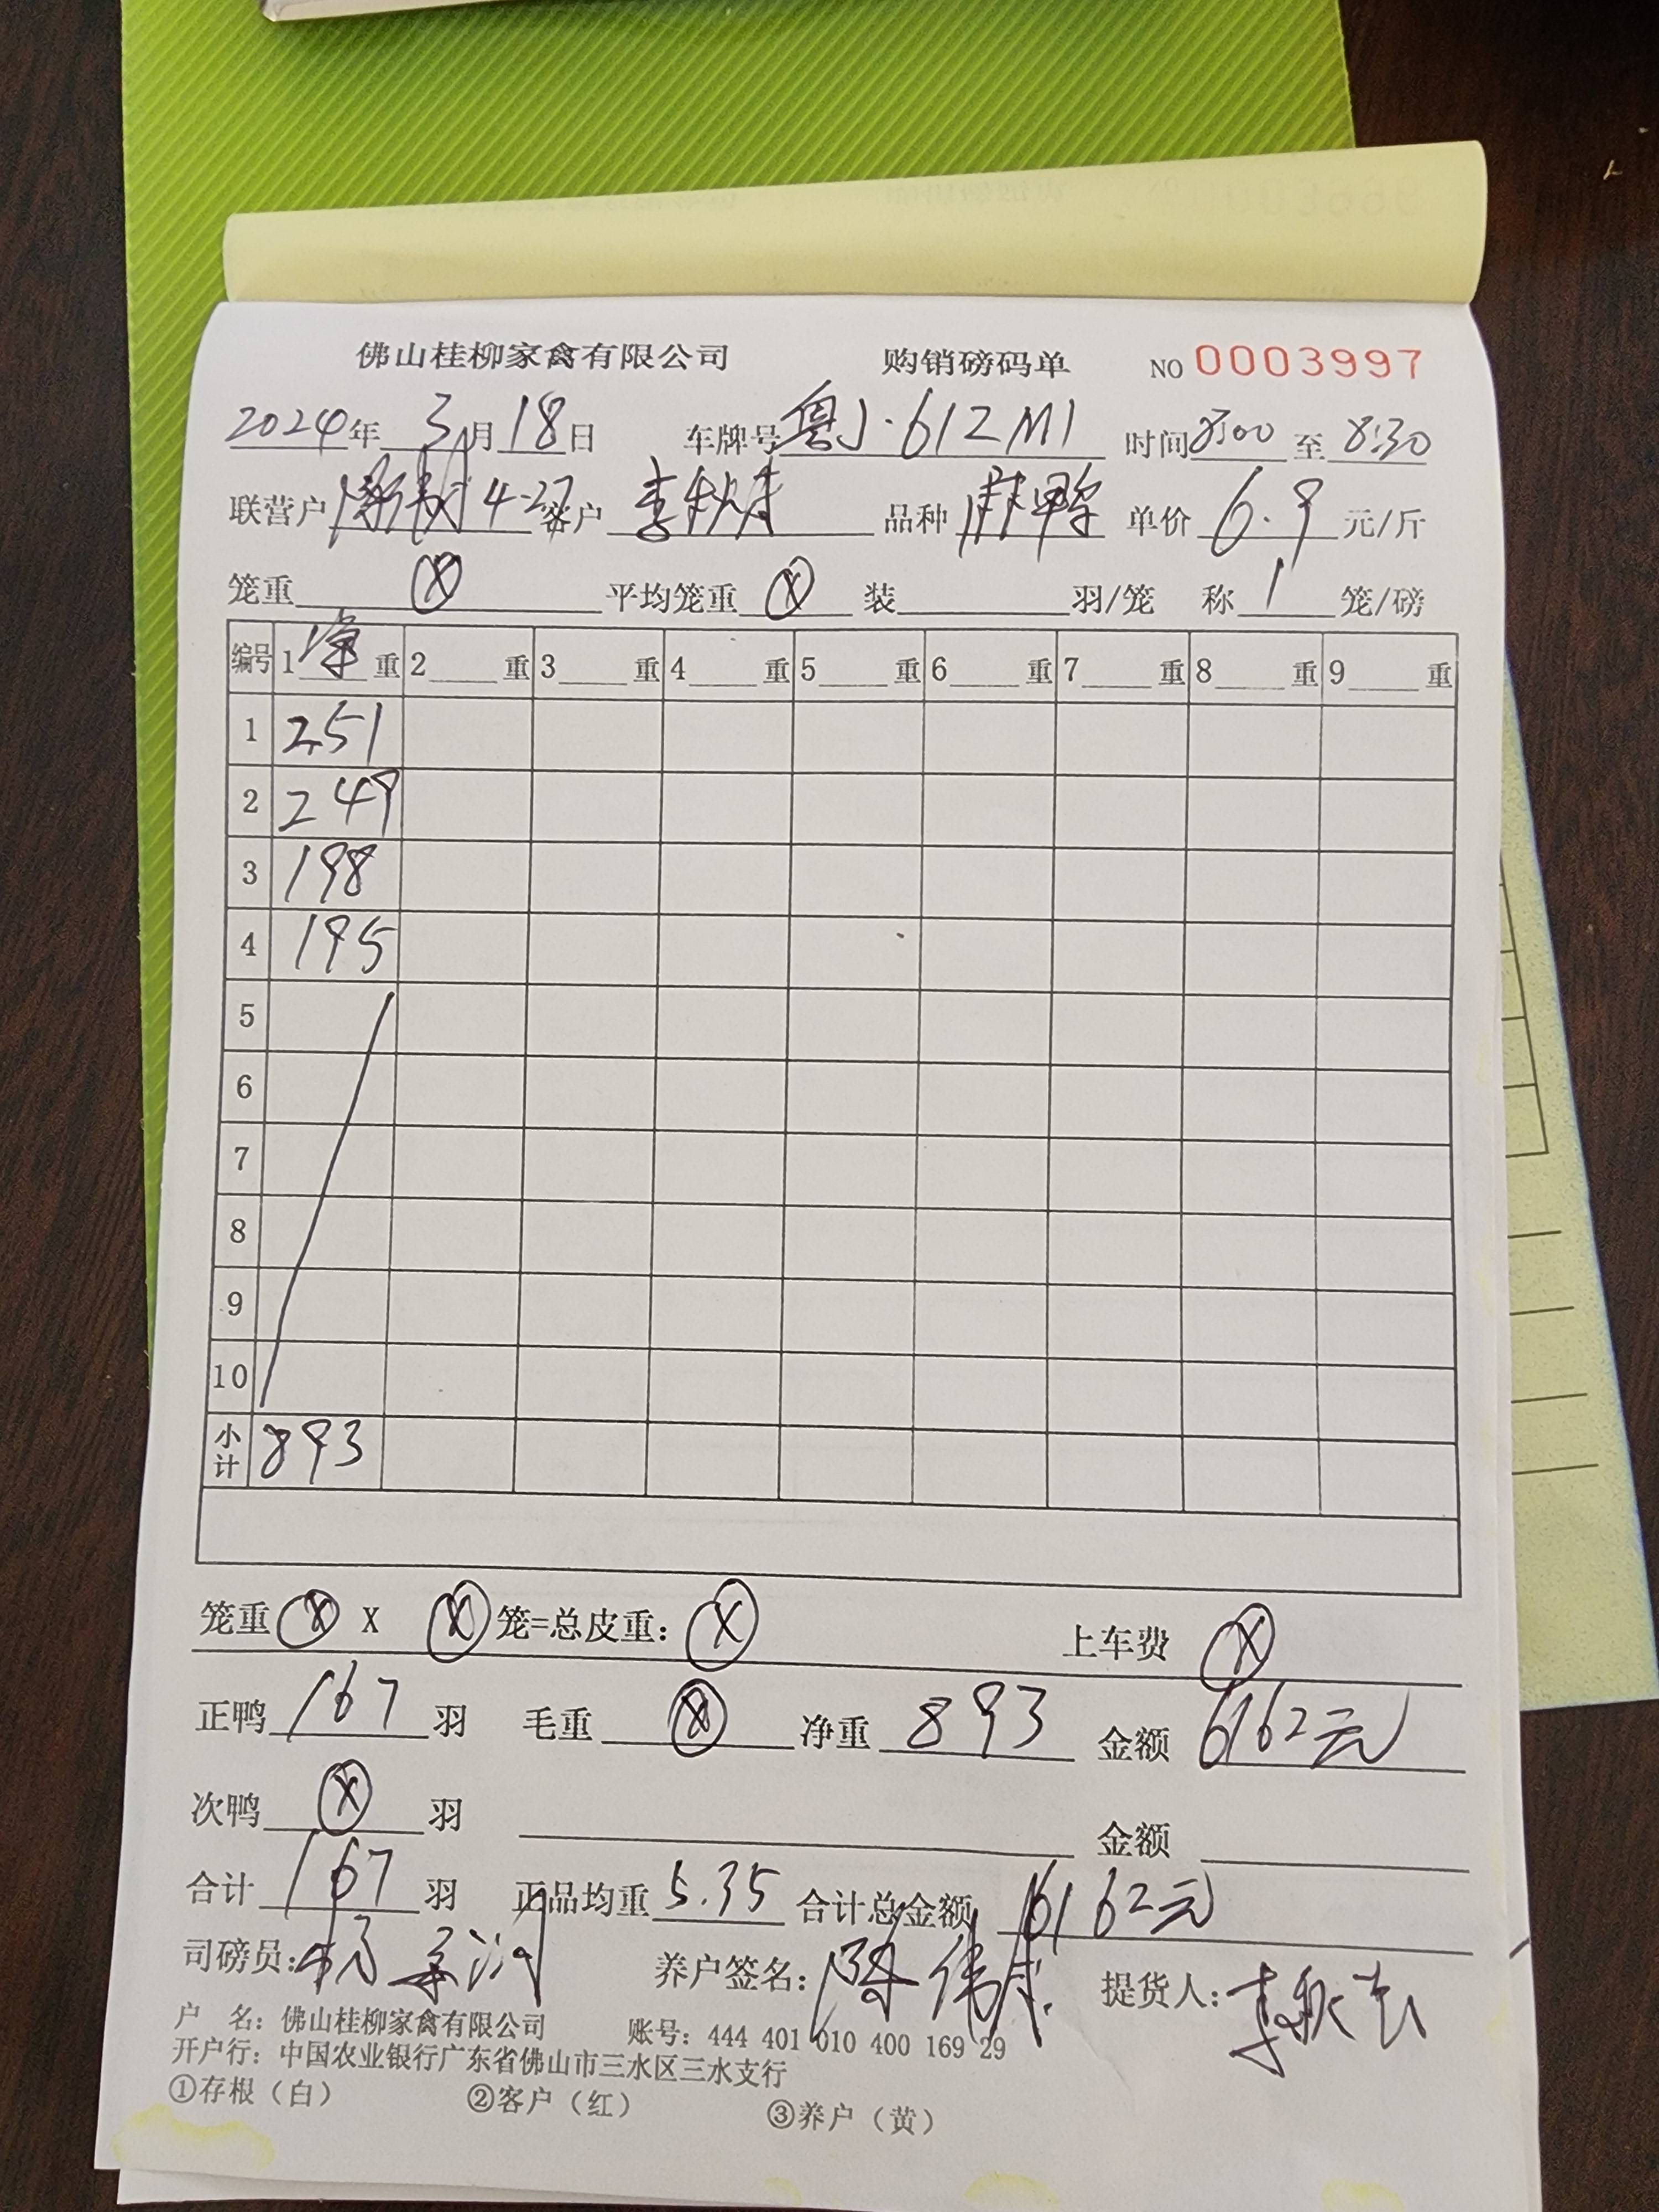 佛山桂柳家禽有限公司 购销磅码单 NO 0003997
2024年 3月18日 车牌号 粤J·612M1 时间 8:00 至 8:30
联营户 4-27 客户 品种 麻鸭 单价 6.9 元/斤
笼重 ⓧ 平均笼重 ⓧ 装 羽/笼 称 1 笼/磅
编号 1 净 重 2 重 3 重 4 重 5 重 6 重 7 重 8 重 9 重
1 251
2 249
3 198
4 195
5
6
7
8
9
10
小计 893
笼重 ⓧ X ⓧ 笼=总皮重: ⓧ 上车费 ⓧ
正鸭 167 羽 毛重 ⓧ 净重 893 金额 6162元
次鸭 ⓧ 羽 金额
合计 167 羽 正品均重 5.35 合计总金额 6162元
司磅员: 养户签名: 提货人:
户 名: 佛山桂柳家禽有限公司 账号: 444 401 010 400 169 29
开户行: 中国农业银行广东省佛山市三水区三水支行
①存根（白） ②客户（红） ③养户（黄）